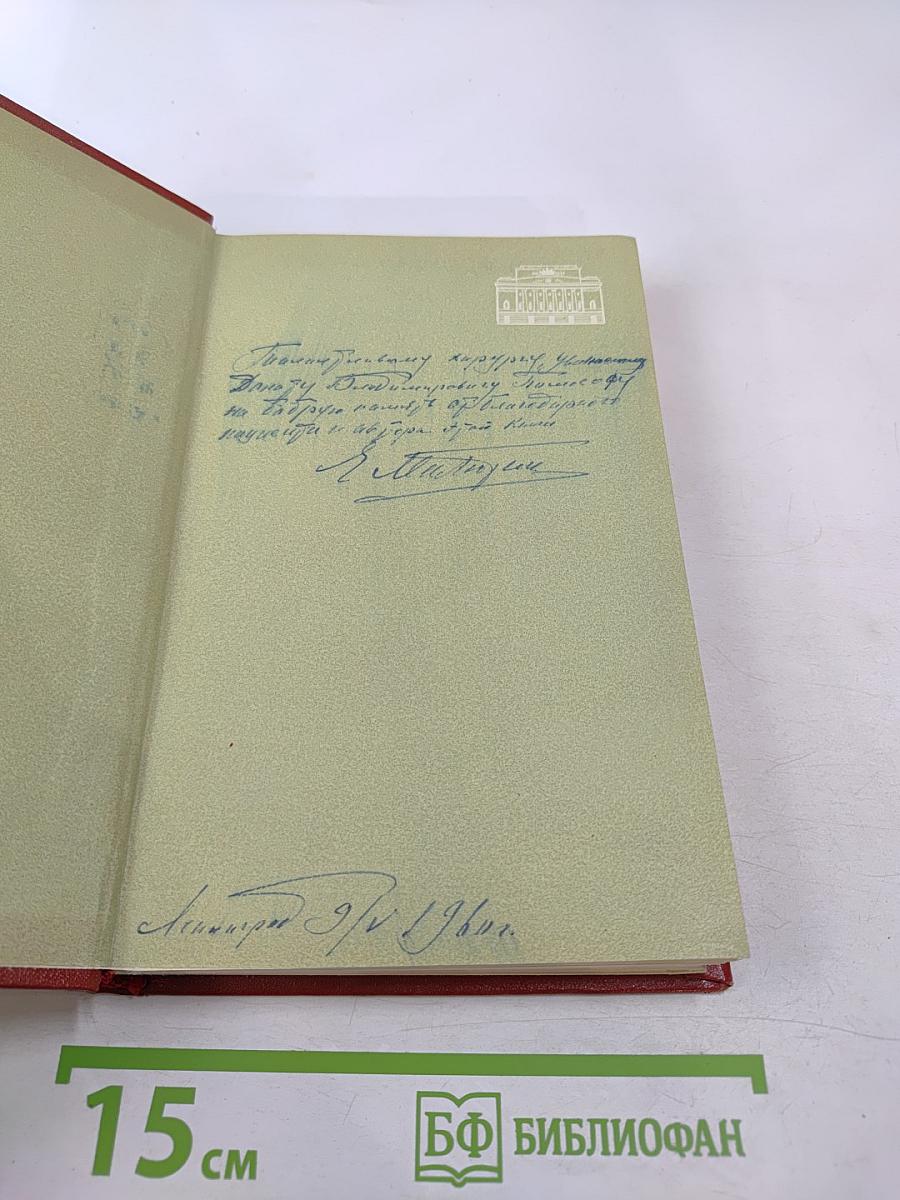 Талантливому хирургу, уважаемому
Донату Владимировичу
на добрую память от благодарного
пациента и автора этой книги
Ленинград 9/V 1960 г.
15 см
БФ БИБЛИОФАН